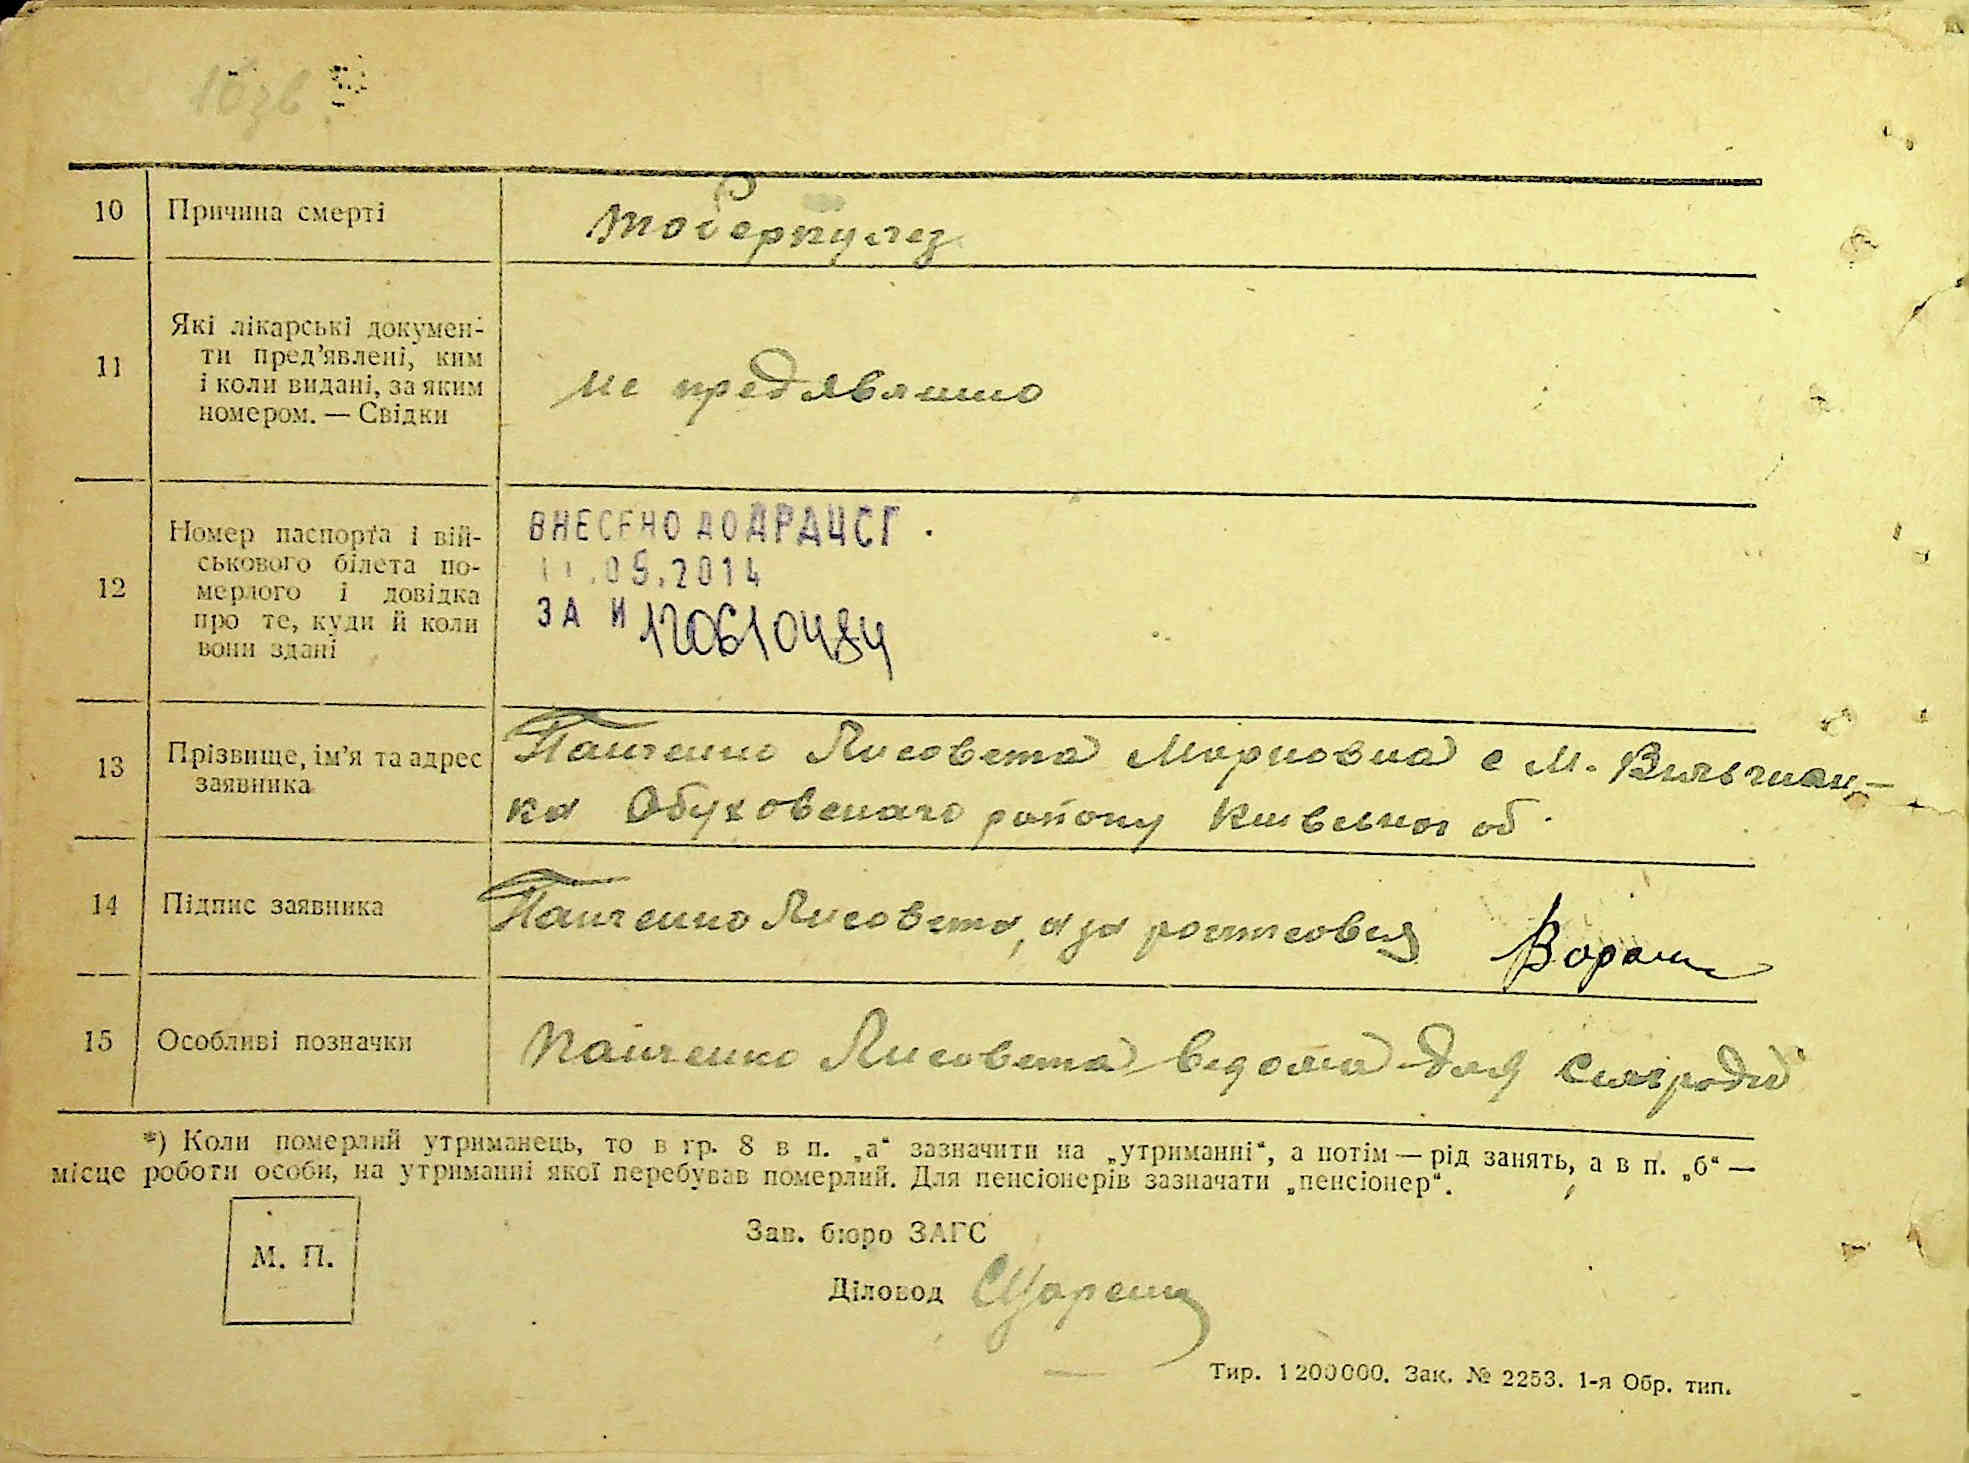 10 Причина смерті
Тоберкулез
11 Які лікарські докумен-
ти пред’явлені, ким
і коли видані, за яким
номером. — Свідки
не предявлино
12 Номер паспорта і вій-
ськового білета по-
мерлого і довідка
про те, куди й коли
вони здані
ВНЕСЕНО ДО ДРАЦСГ
.05.2014
ЗА И 120610484
13 Прізвище, ім’я та адрес
заявника
Панченко Лисовета Марковна с М. Вильшан-
ка Обуховского району Київської об.
14 Підпис заявника
Панченко Лисовета, а за
15 Особливі позначки
Панченко Лисовета ведома для Сильради
*) Коли померлий утриманець, то в гр. 8 в п. „а“ зазначити на „утриманні“, а потім — рід занять, а в п. „б“ —
місце роботи особи, на утриманні якої перебував померлий. Для пенсіонерів зазначати „пенсіонер“.
М. П.
Зав. бюро ЗАГС
Діловод
Тир. 1200000. Зак. № 2253. 1-я Обр. тип.